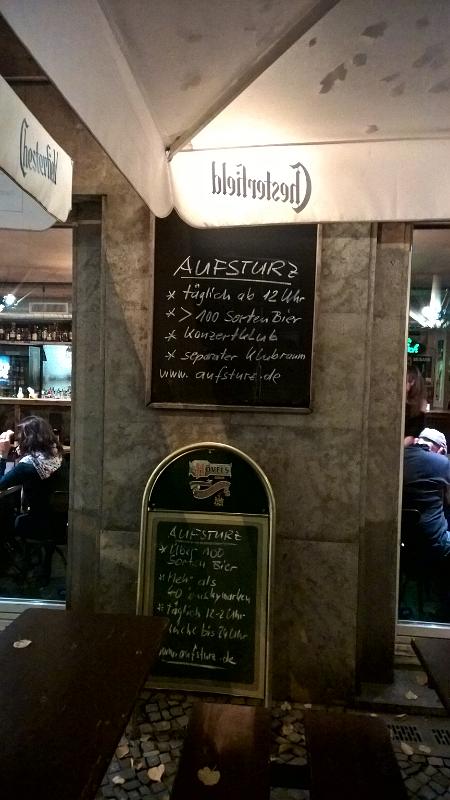 Chesterfield
Chesterfield
AUFSTURZ
* täglich ab 12 Uhr
* > 100 Sorten Bier
* Konzertklub
* separater Klubraum
www.aufsturz.de
HÖVELS
AUFSTURZ
* Über 100
Sorten Bier
* Mehr als
40 Whiskymarken
* Täglich 12-2 Uhr
Küche bis 24 Uhr
www.aufsturz.de